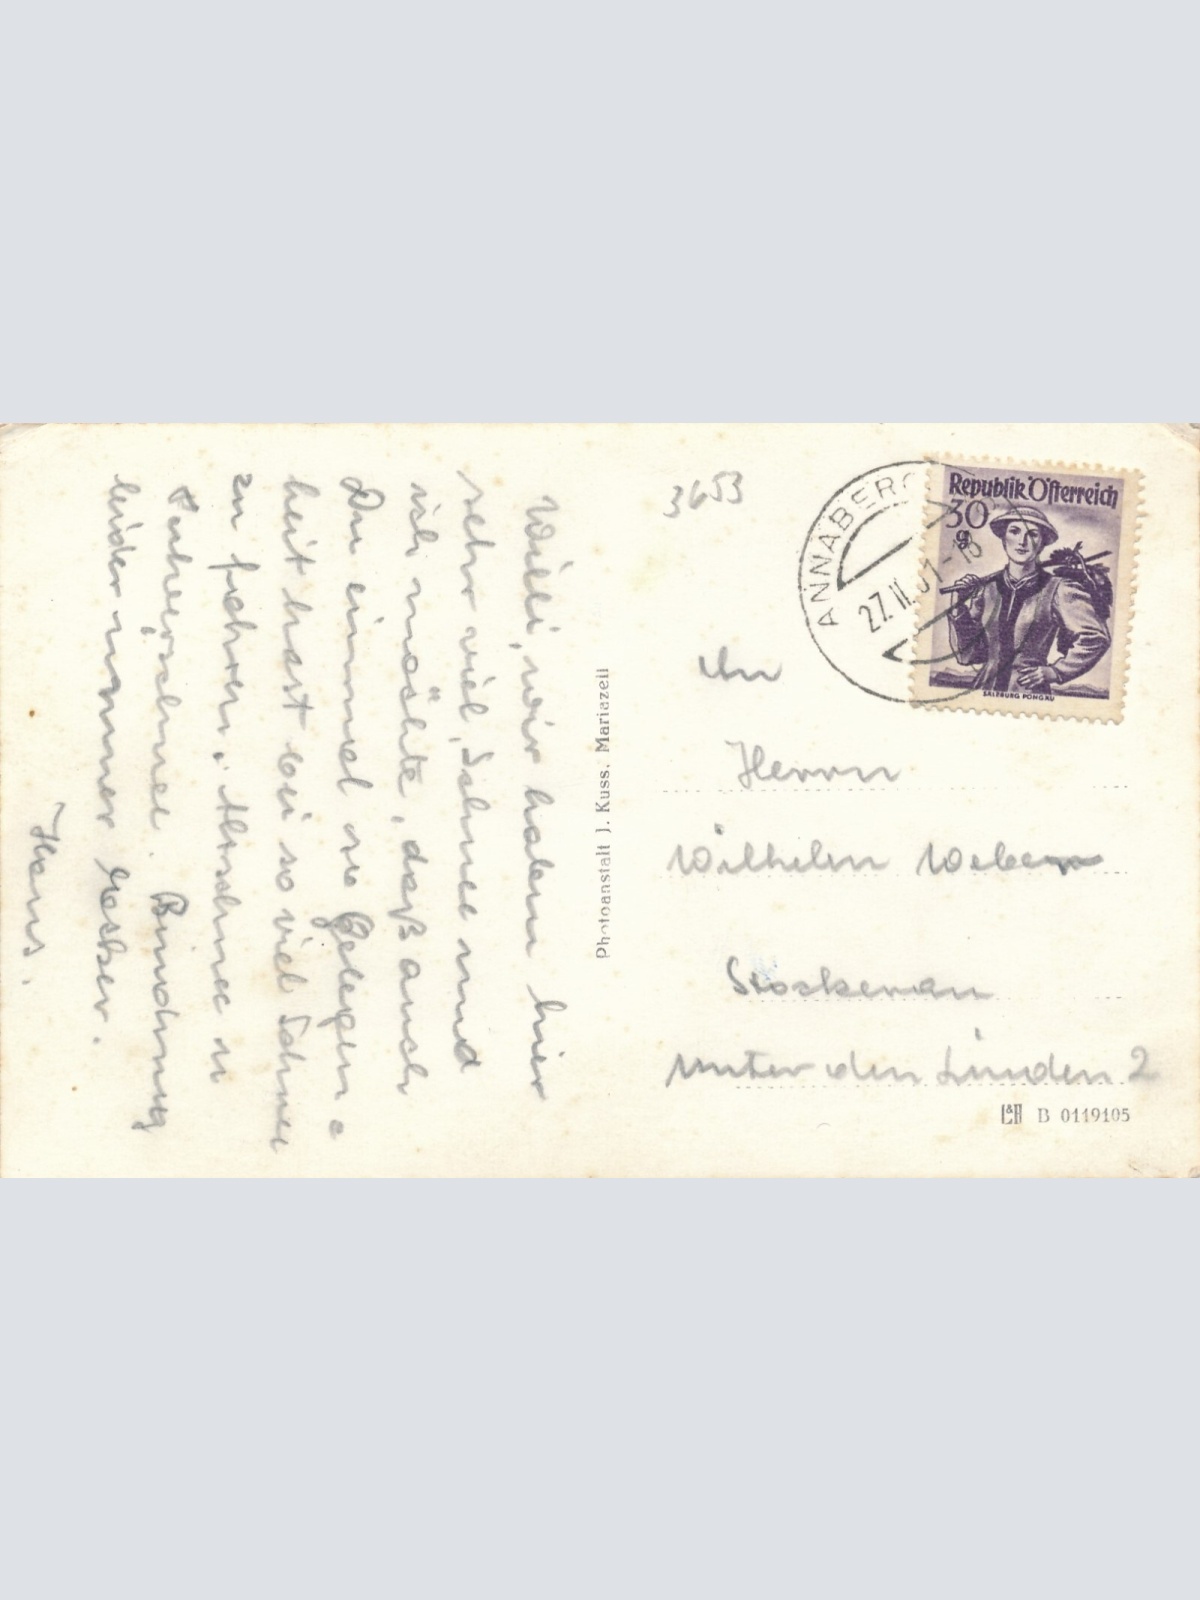 Willi, wir haben hier
sehr viel Schnee und
ich möchte, daß auch
Du einmal so Gelegen=
heit hast bei so viel Schnee
zu fahren.
Pulverschnee. Bindung
leider immer locker.
Hans.
Photoanstalt J. Kuss, Mariazell
3653
ANNABERG
27.II.51-18
Republik Österreich
30
g
SALZBURG PONGAU
An
Herrn
Wilhelm Weber
Stockerau
Unter den Linden 2
L&H B 0119105